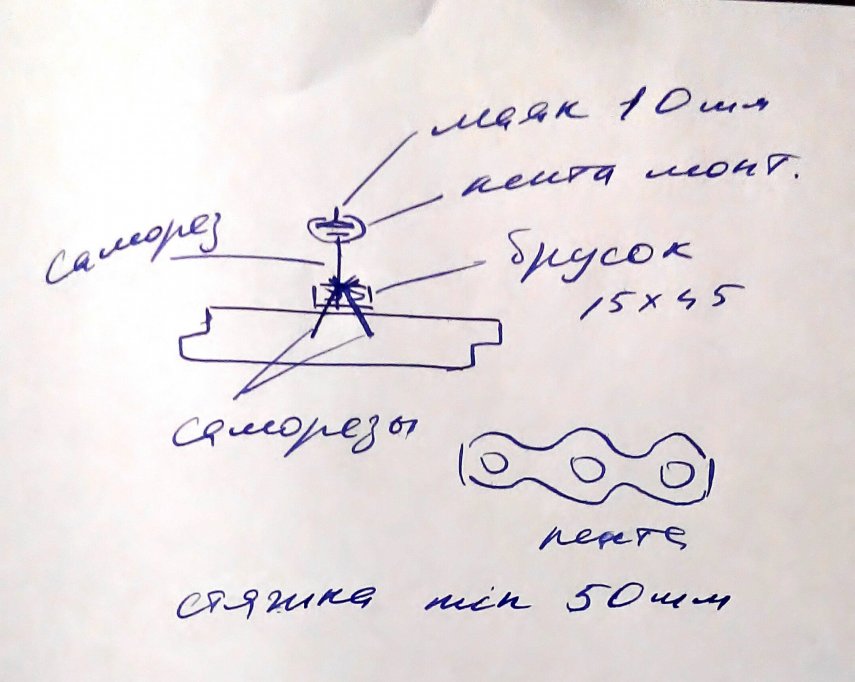 маяк 10мм
лента монт.
саморез
брусок
15х45
саморезы
лента
стяжка min 50мм